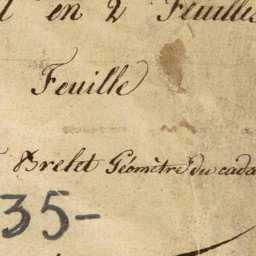 en 2 Feuilles
Feuille
Brelet Géomètre du cada
35-